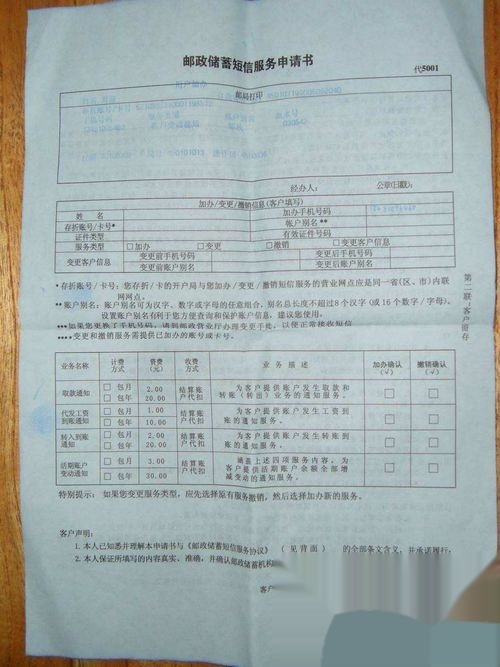 邮政储蓄短信服务申请书
代5001
邮局打印
经办人：
公章(日戳):
加办/变更/撤销信息(客户填写)
姓名 加办手机号码
存折账号/卡号* 帐户别名**
证件类型 有效证件号码
服务类型 □加办 □变更 □撤销 □变更客户信息
变更客户信息 变更前手机号码 变更后手机号码
变更前账户别名 变更后账户别名
*存折账号/卡号：您存折/卡的开户局与您加办/变更/撤销短信服务的营业网点应是同一省(区、市)内联
网网点。
**账户别名：账户别名可为汉字、数字或字母的任意组合，别名总长度不超过8个汉字(或16个数字/字母)。
设置账户别名有利于您方便查询和保护账户信息，建议您使用。
***如果您更换了手机号码，请到邮政营业厅办理变更手续，以便正常接收短信。
****变更和撤销服务需提供已加办的账号或卡号。
第二联：客户留存
业务名称 计费方式 资费(元) 收费方式 业务描述 加办确认(√) 撤销确认(√)
取款通知 □包月 2.00 □包年 20.00 结算账户代扣 为客户提供账户发生取款和转账(转出)业务的通知服务。 □ □
代发工资到账通知 □包月 1.00 □包年 10.00 结算账户代扣 为客户提供账户发生工资到账的通知服务。 □ □
转入到账通知 □包月 2.00 □包年 20.00 结算账户代扣 为客户提供账户发生转账到账的通知服务。 □ □
活期账户变动通知 □包月 3.00 □包年 30.00 结算账户代扣 涵盖上述四项服务内容，为客户提供活期账户余额全部增减变动的通知服务。 □ □
特别提示：如果您变更服务类型，应先选择原有服务撤销，然后选择加办新的服务。
客户声明：
1. 本人已知悉并理解本申请书与《邮政储蓄短信服务协议》(见背面)的全部条文含义，并承诺履行。
2. 本人保证所填写的内容真实、准确，并确认邮政储蓄机构
客户